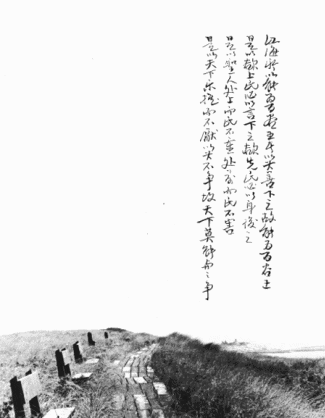 江海所以能為百谷王者以其善下之故能為百谷王
是以欲上民必以言下之欲先民必以身後之
是以聖人处上而民不重处前而民不害
是以天下乐推而不厭以其不争故天下莫能与之争